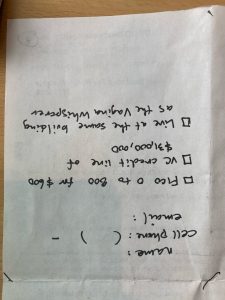 name :
cell phone : (      )      -
email :
□ Fico 0 to 800 for $600
□ VC credit line of
$31,000,000
□ Live at the same building
as the Vagina Whisperer